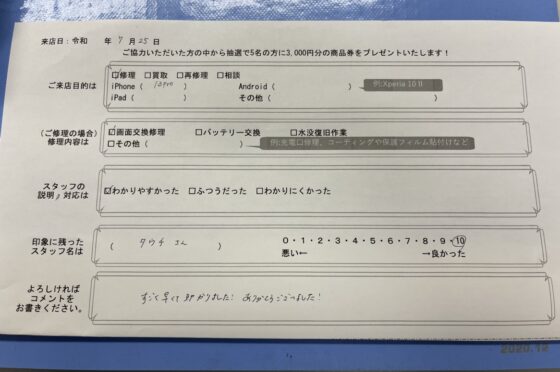 来店日：令和　　年 7 月 25 日
ご協力いただいた方の中から抽選で5名の方に3,000円分の商品券をプレゼントいたします！
ご来店目的は
☑修理　□買取　□再修理　□相談
iPhone（ 12pro ）　Android（　　　）例:Xperia 10 Ⅱ
iPad（　　　）　その他（　　　）
（ご修理の場合）
修理内容は
☑画面交換修理　□バッテリー交換　□水没復旧作業
□その他（　　　）例:充電口修理、コーティングや保護フィルム貼付けなど
スタッフの
説明／対応は
☑わかりやすかった　□ふつうだった　□わかりにくかった
印象に残った
スタッフ名は
（ タウチ さん ）
0・1・2・3・4・5・6・7・8・9・10
悪い←　→良かった
よろしければ
コメントを
お書きください。
すごく早くて助かりました! ありがとうございました!
2020.12